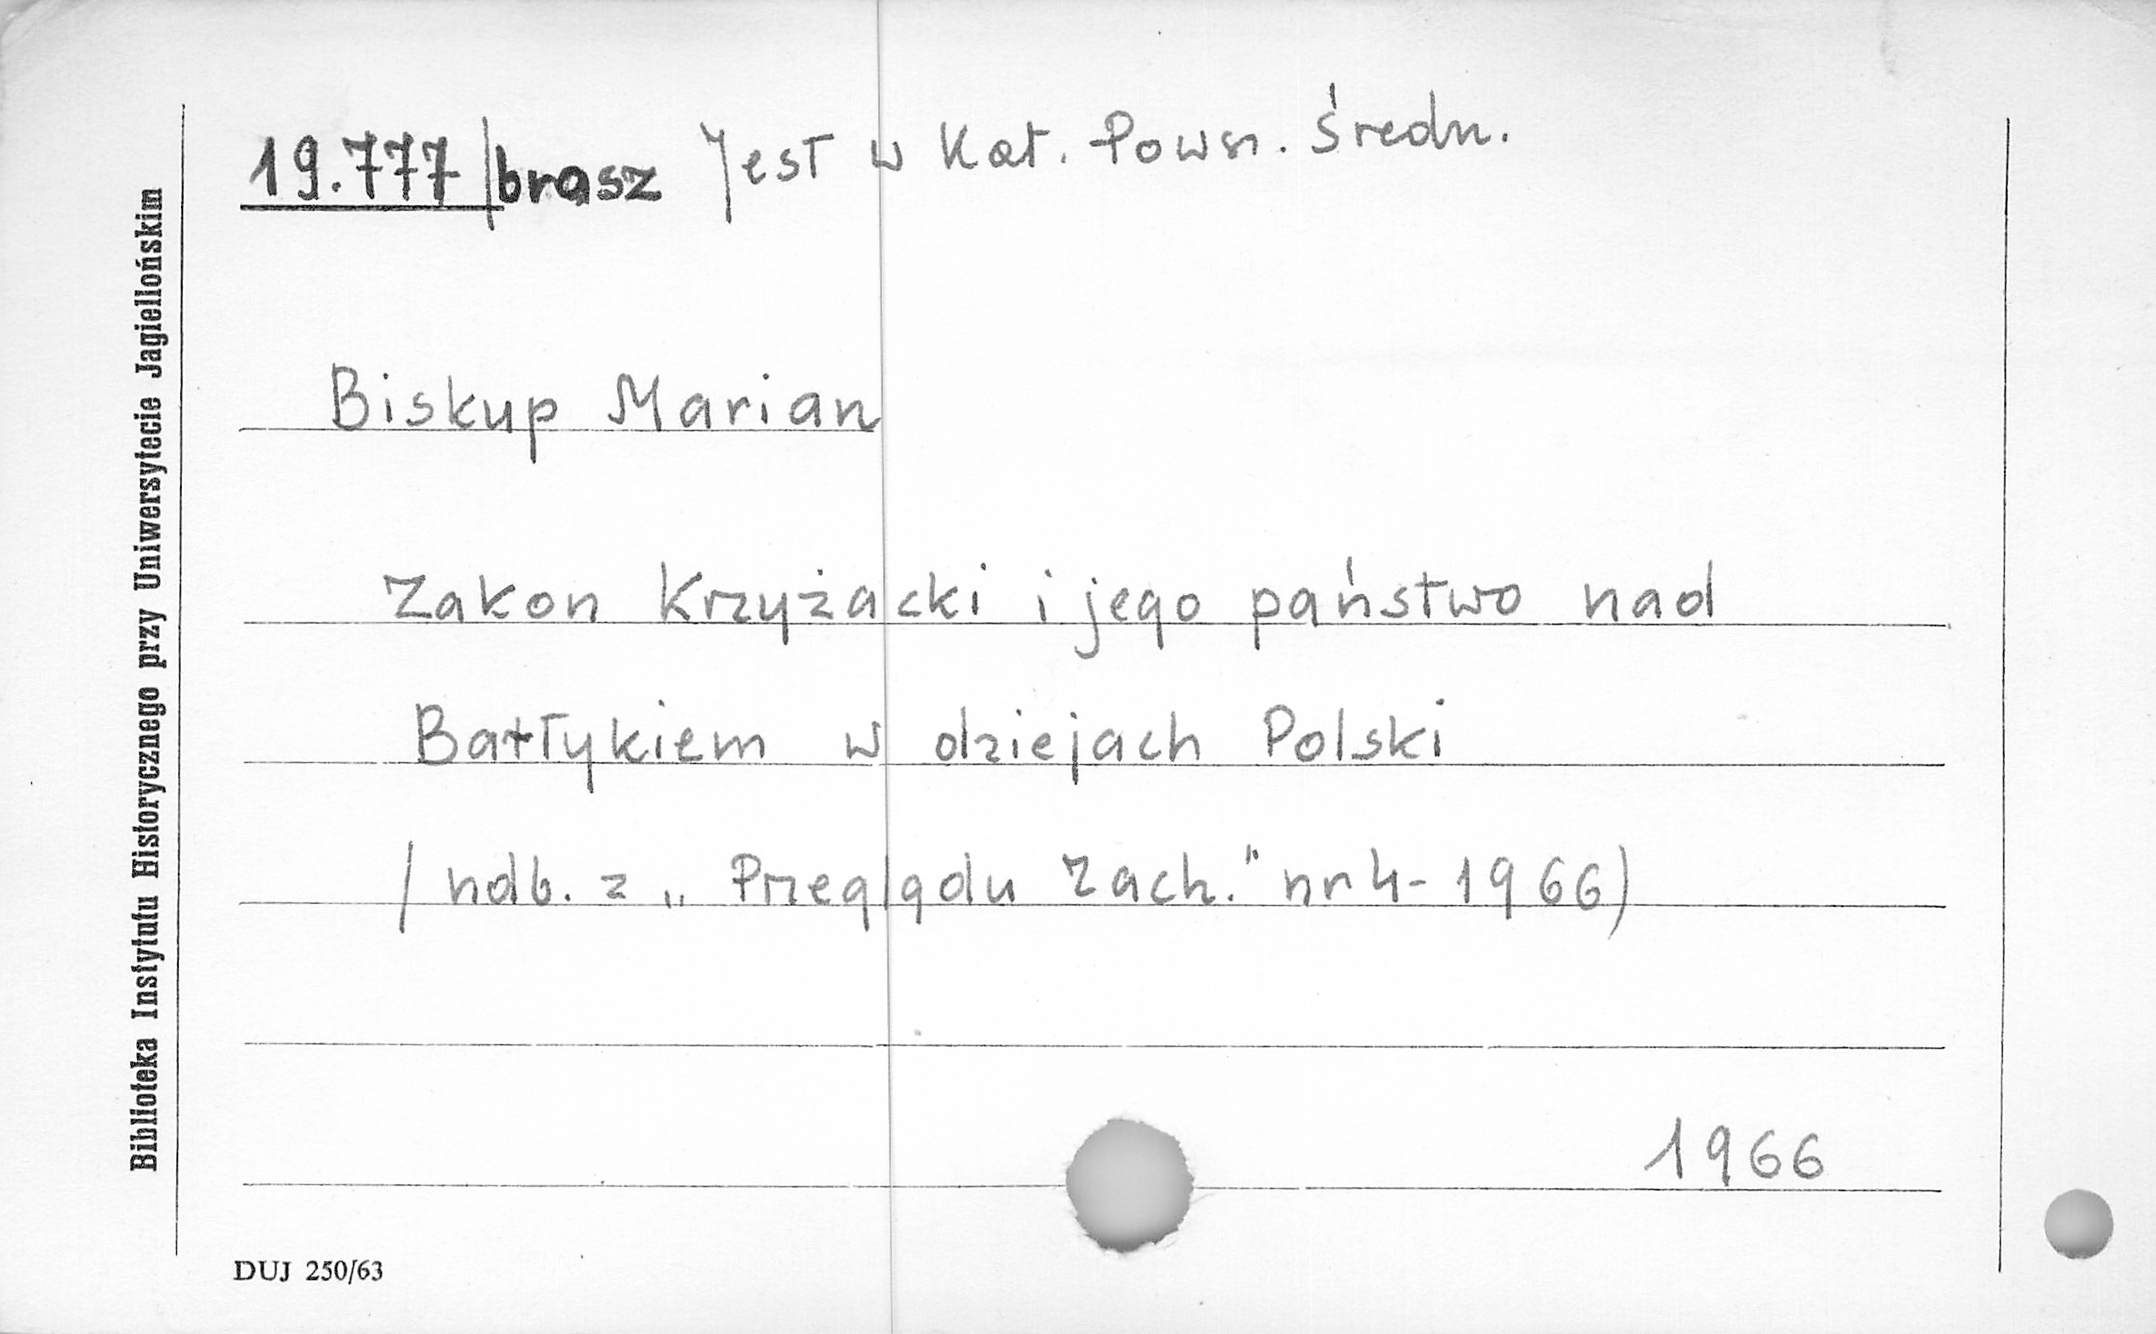 19.777/brasz Jest w Kat. Powsz. Średn.
Biskup Marian
Zakon Krzyżacki i jego państwo nad
Bałtykiem w dziejach Polski
/ ndb. z „Przeglądu Zach." nr 4-1966)
1966
Biblioteka Instytutu Historycznego przy Uniwersytecie Jagiellońskim
DUJ 250/63